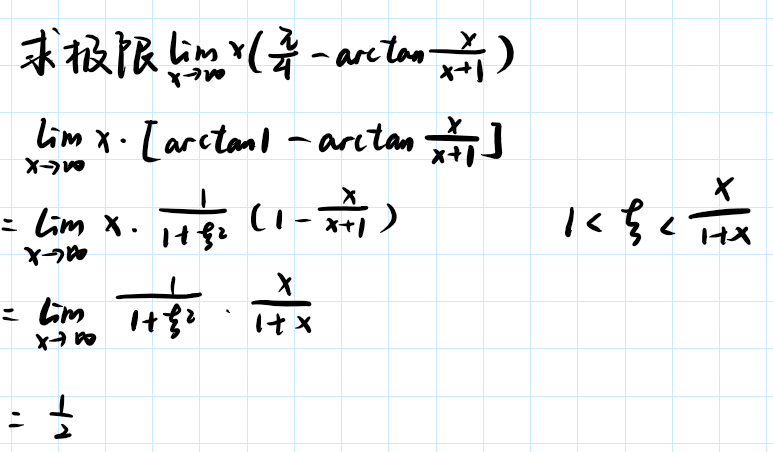 求极限 lim x→∞ x(π/4 - arctan x/(x+1))
lim x→∞ x · [arctan1 - arctan x/(x+1)]
= lim x→∞ x · 1/(1+ξ²) (1 - x/(x+1)) 1 < ξ < x/(1+x)
= lim x→∞ 1/(1+ξ²) · x/(1+x)
= 1/2